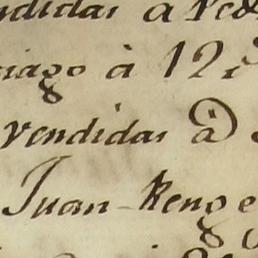 ndidas a Ped
iago à 12
vendidas à D
Juan Renge